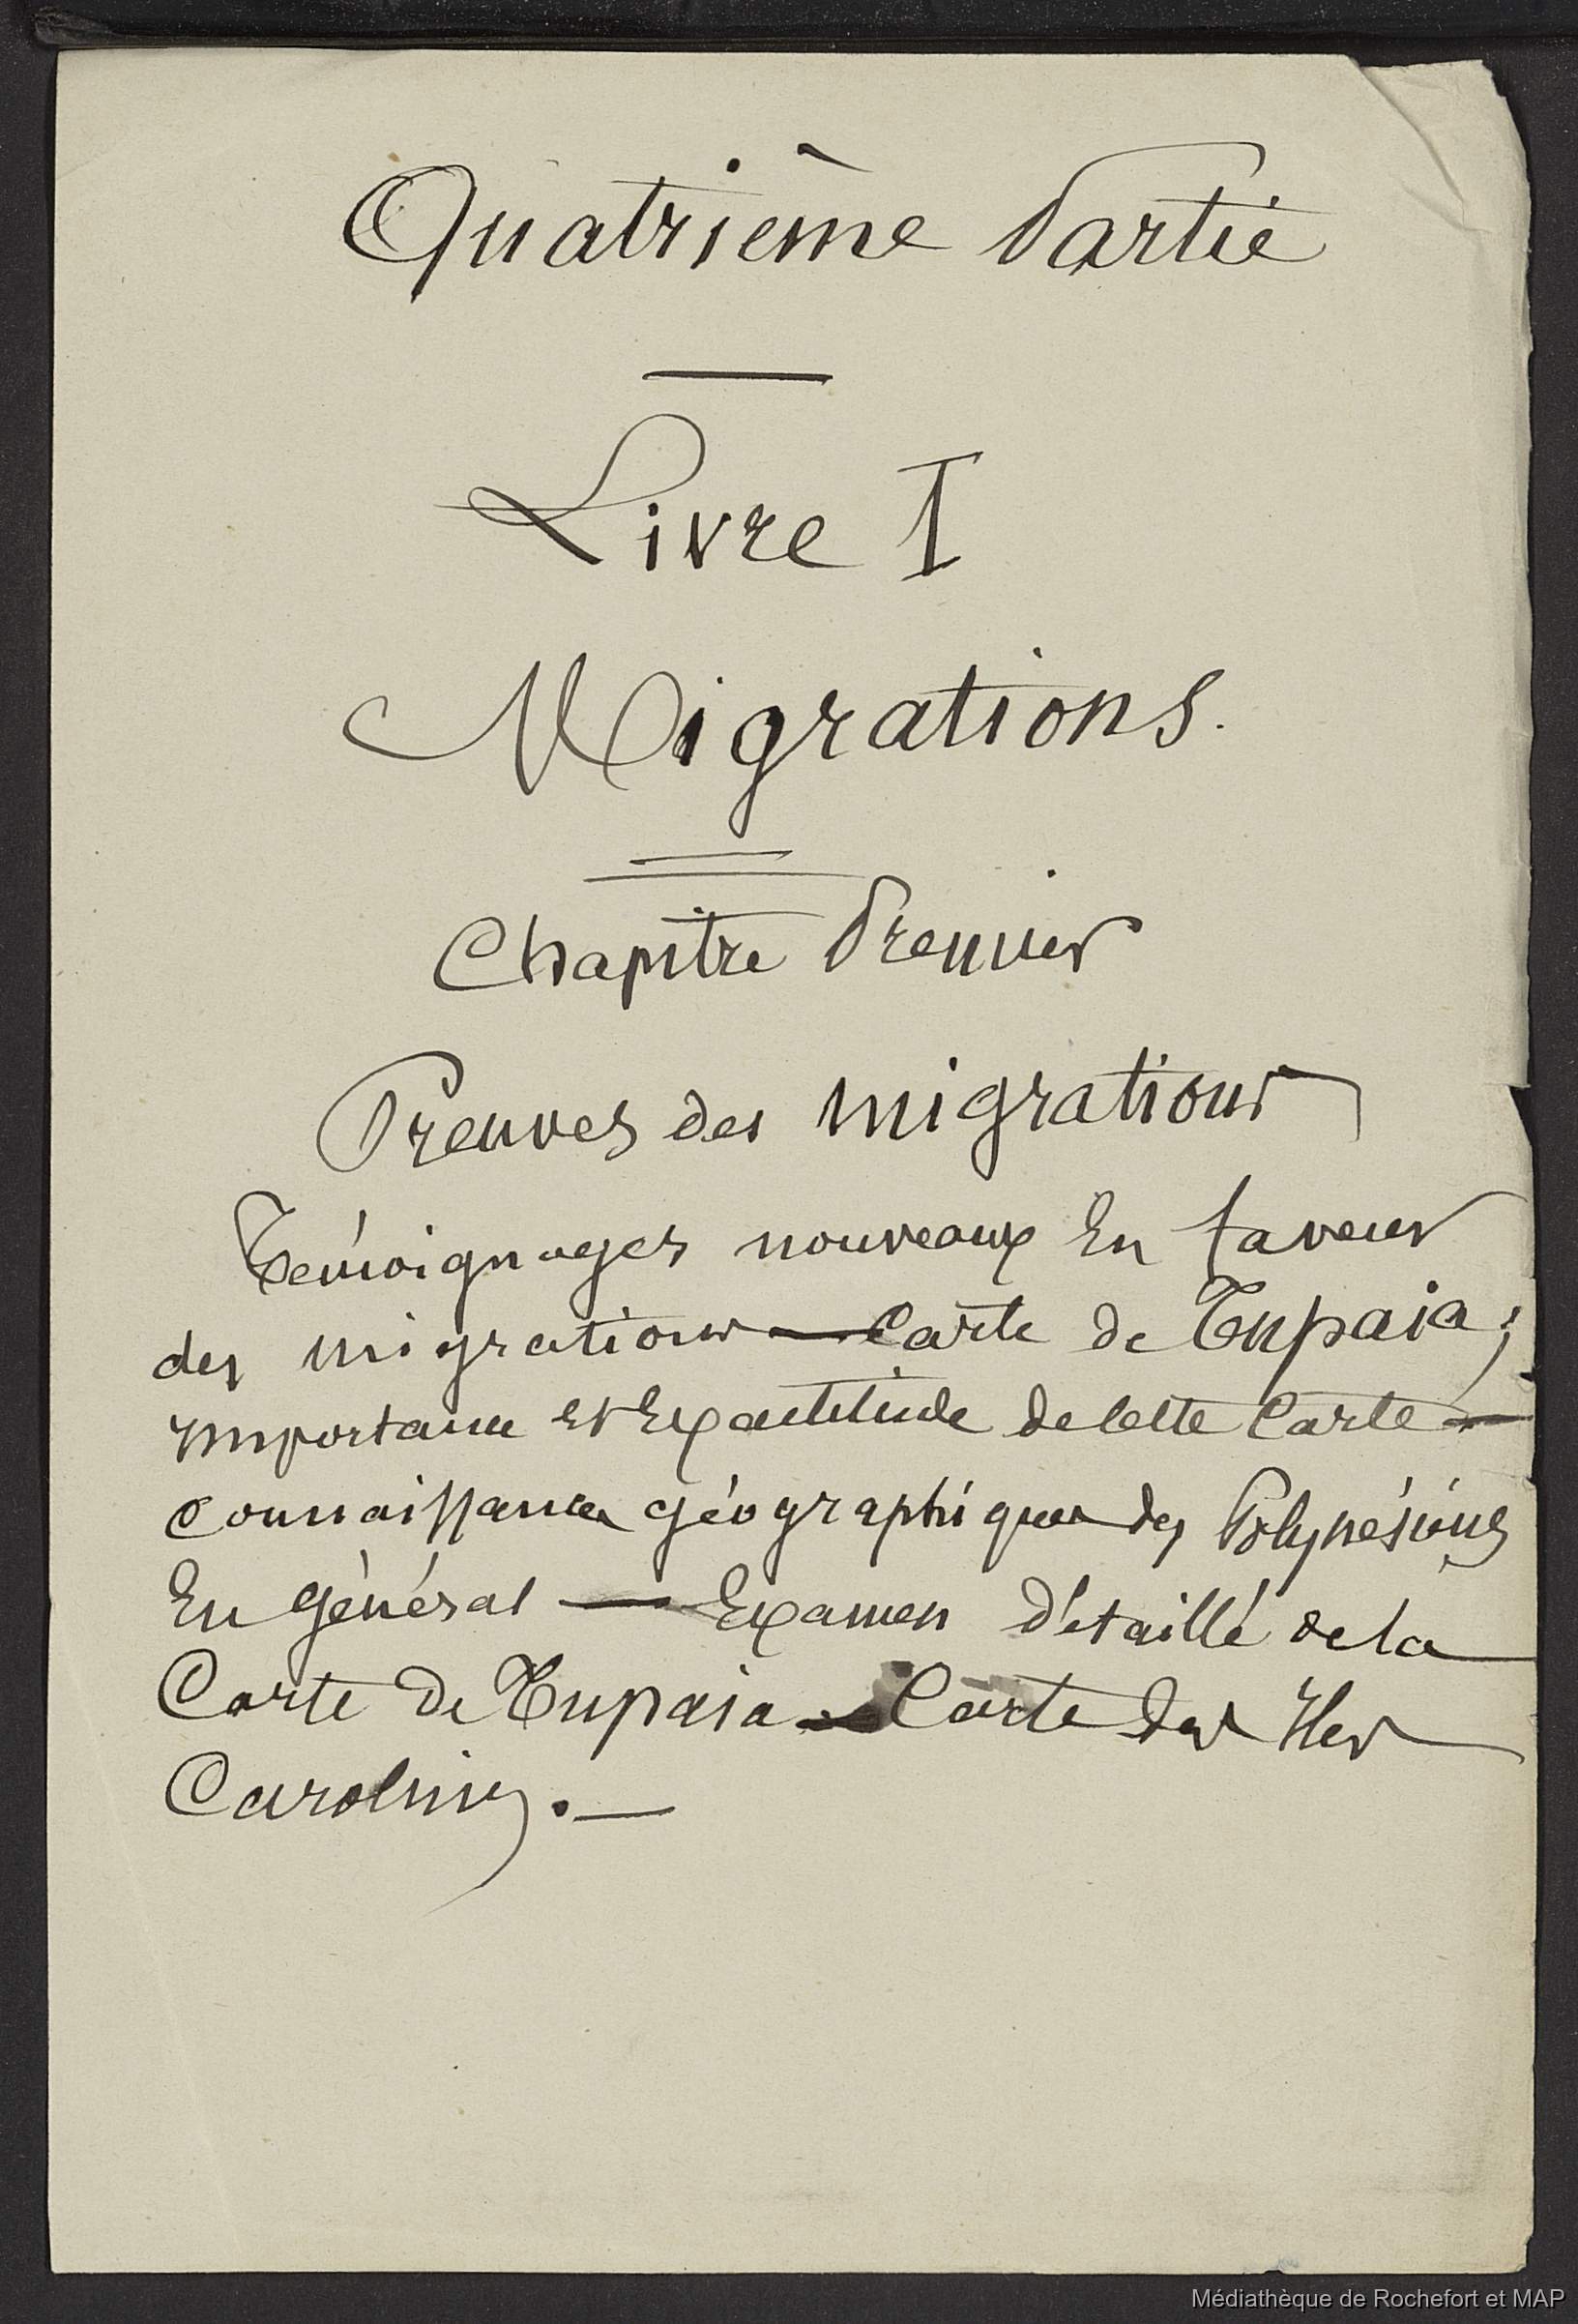 Quatrième Partie
Livre I
Migrations.
Chapitre Premier
Preuves des migrations
Témoignages nouveaux en faveur
des migrations — Carte de Tupaia ;
importance et Exactitude de cette Carte —
connaissances géographiques des Polynésiens
En général — Examen détaillé de la
Carte de Tupaia — Carte des Iles
Carolines. —
Médiathèque de Rochefort et MAP